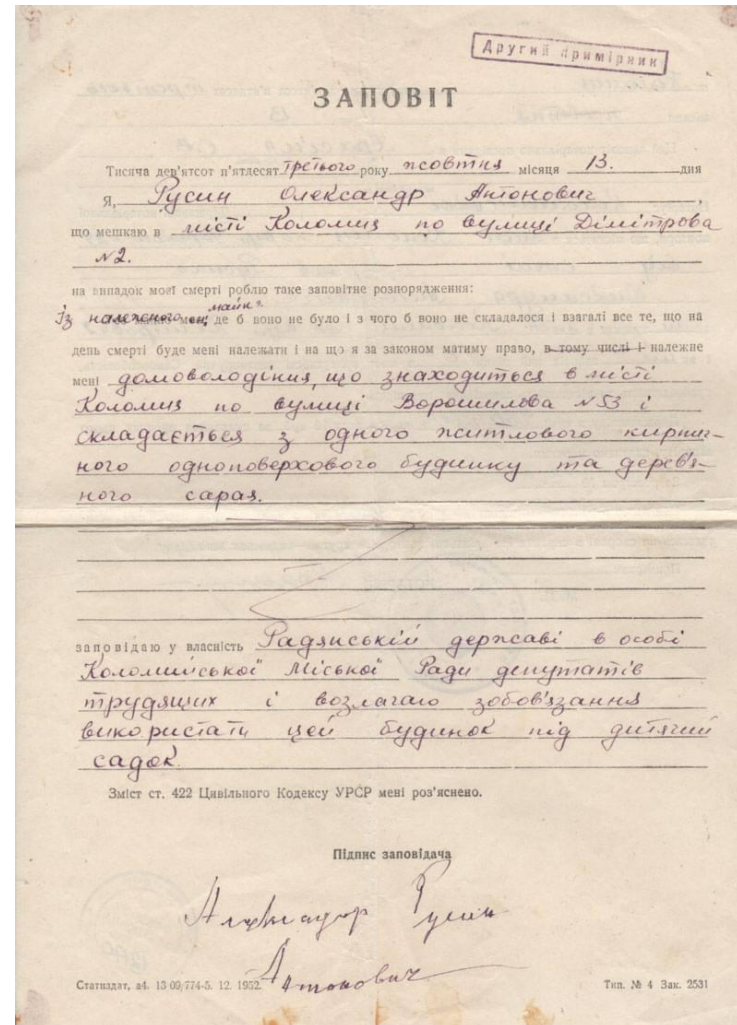 Другий примірник
ЗАПОВІТ
Тисяча дев'ятсот п'ятдесят третього року жовтня місяця 13. дня
Я, Русин Олександр Антонович,
що мешкаю в місті Коломия по вулиці Дімітрова
№2.
на випадок моєї смерті роблю таке заповітне розпорядження:
Із належного мені майна де б воно не було і з чого б воно не складалося і взагалі все те, що на
день смерті буде мені належати і на що я за законом матиму право, в тому числі і належне
мені домоволодіння, що знаходиться в місті
Коломия по вулиці Ворошилова №53 і
складається з одного житлового кирпич-
ного одноповерхового будинку та дерев'я-
ного сарая.
заповідаю у власність Радянській державі в особі
Коломийської Міської Ради депутатів
трудящих і возлагаю зобов'язання
використати цей будинок під дитячий
садок.
Зміст ст. 422 Цивільного Кодексу УРСР мені роз'яснено.
Підпис заповідача
Александр Русин
Антонович
Статиздат, а4. 13 09/774-5. 12. 1952.
Тип. № 4 Зак. 2531